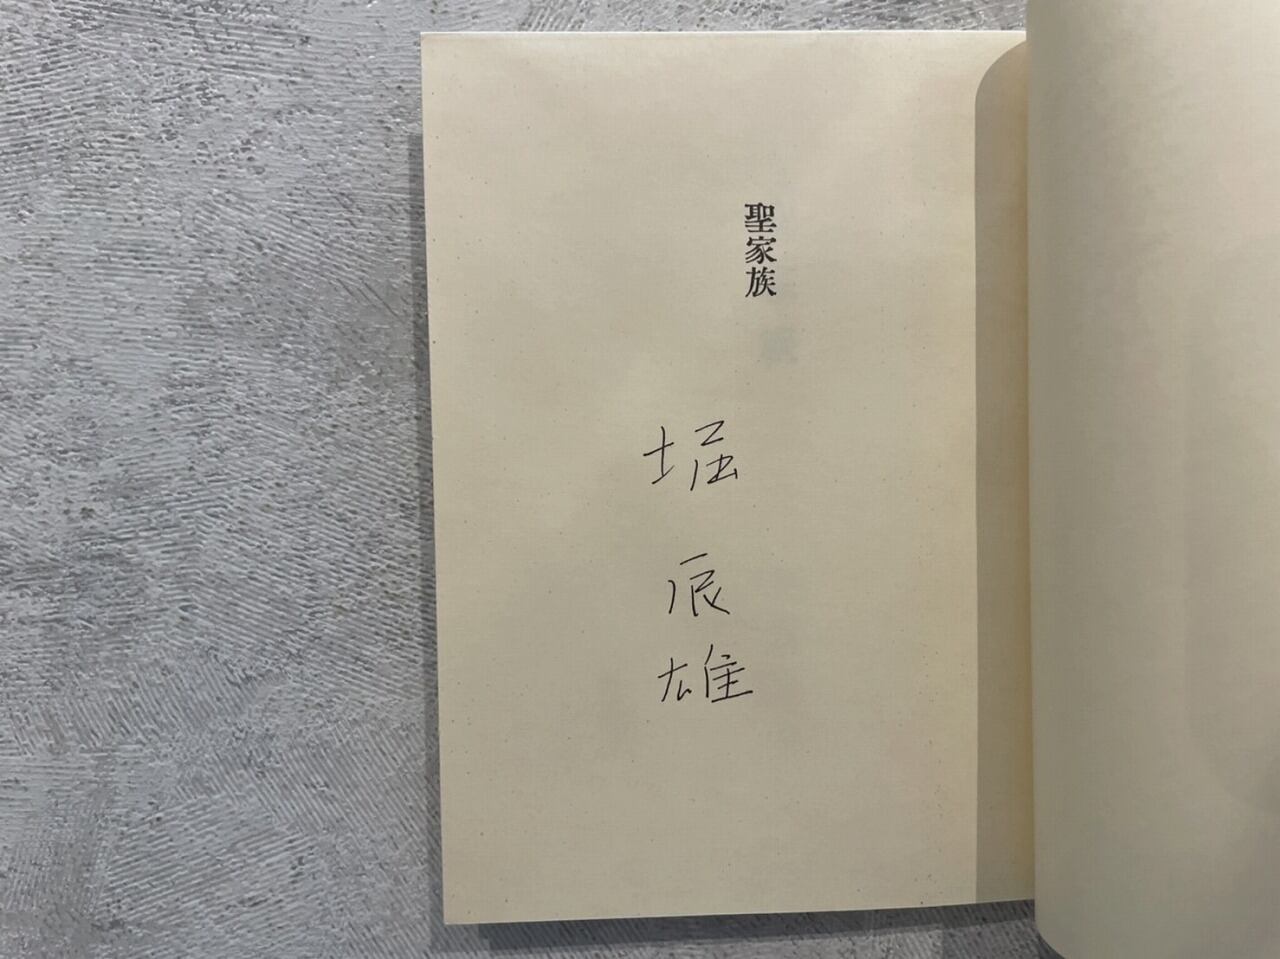 聖家族
堀
辰
雄